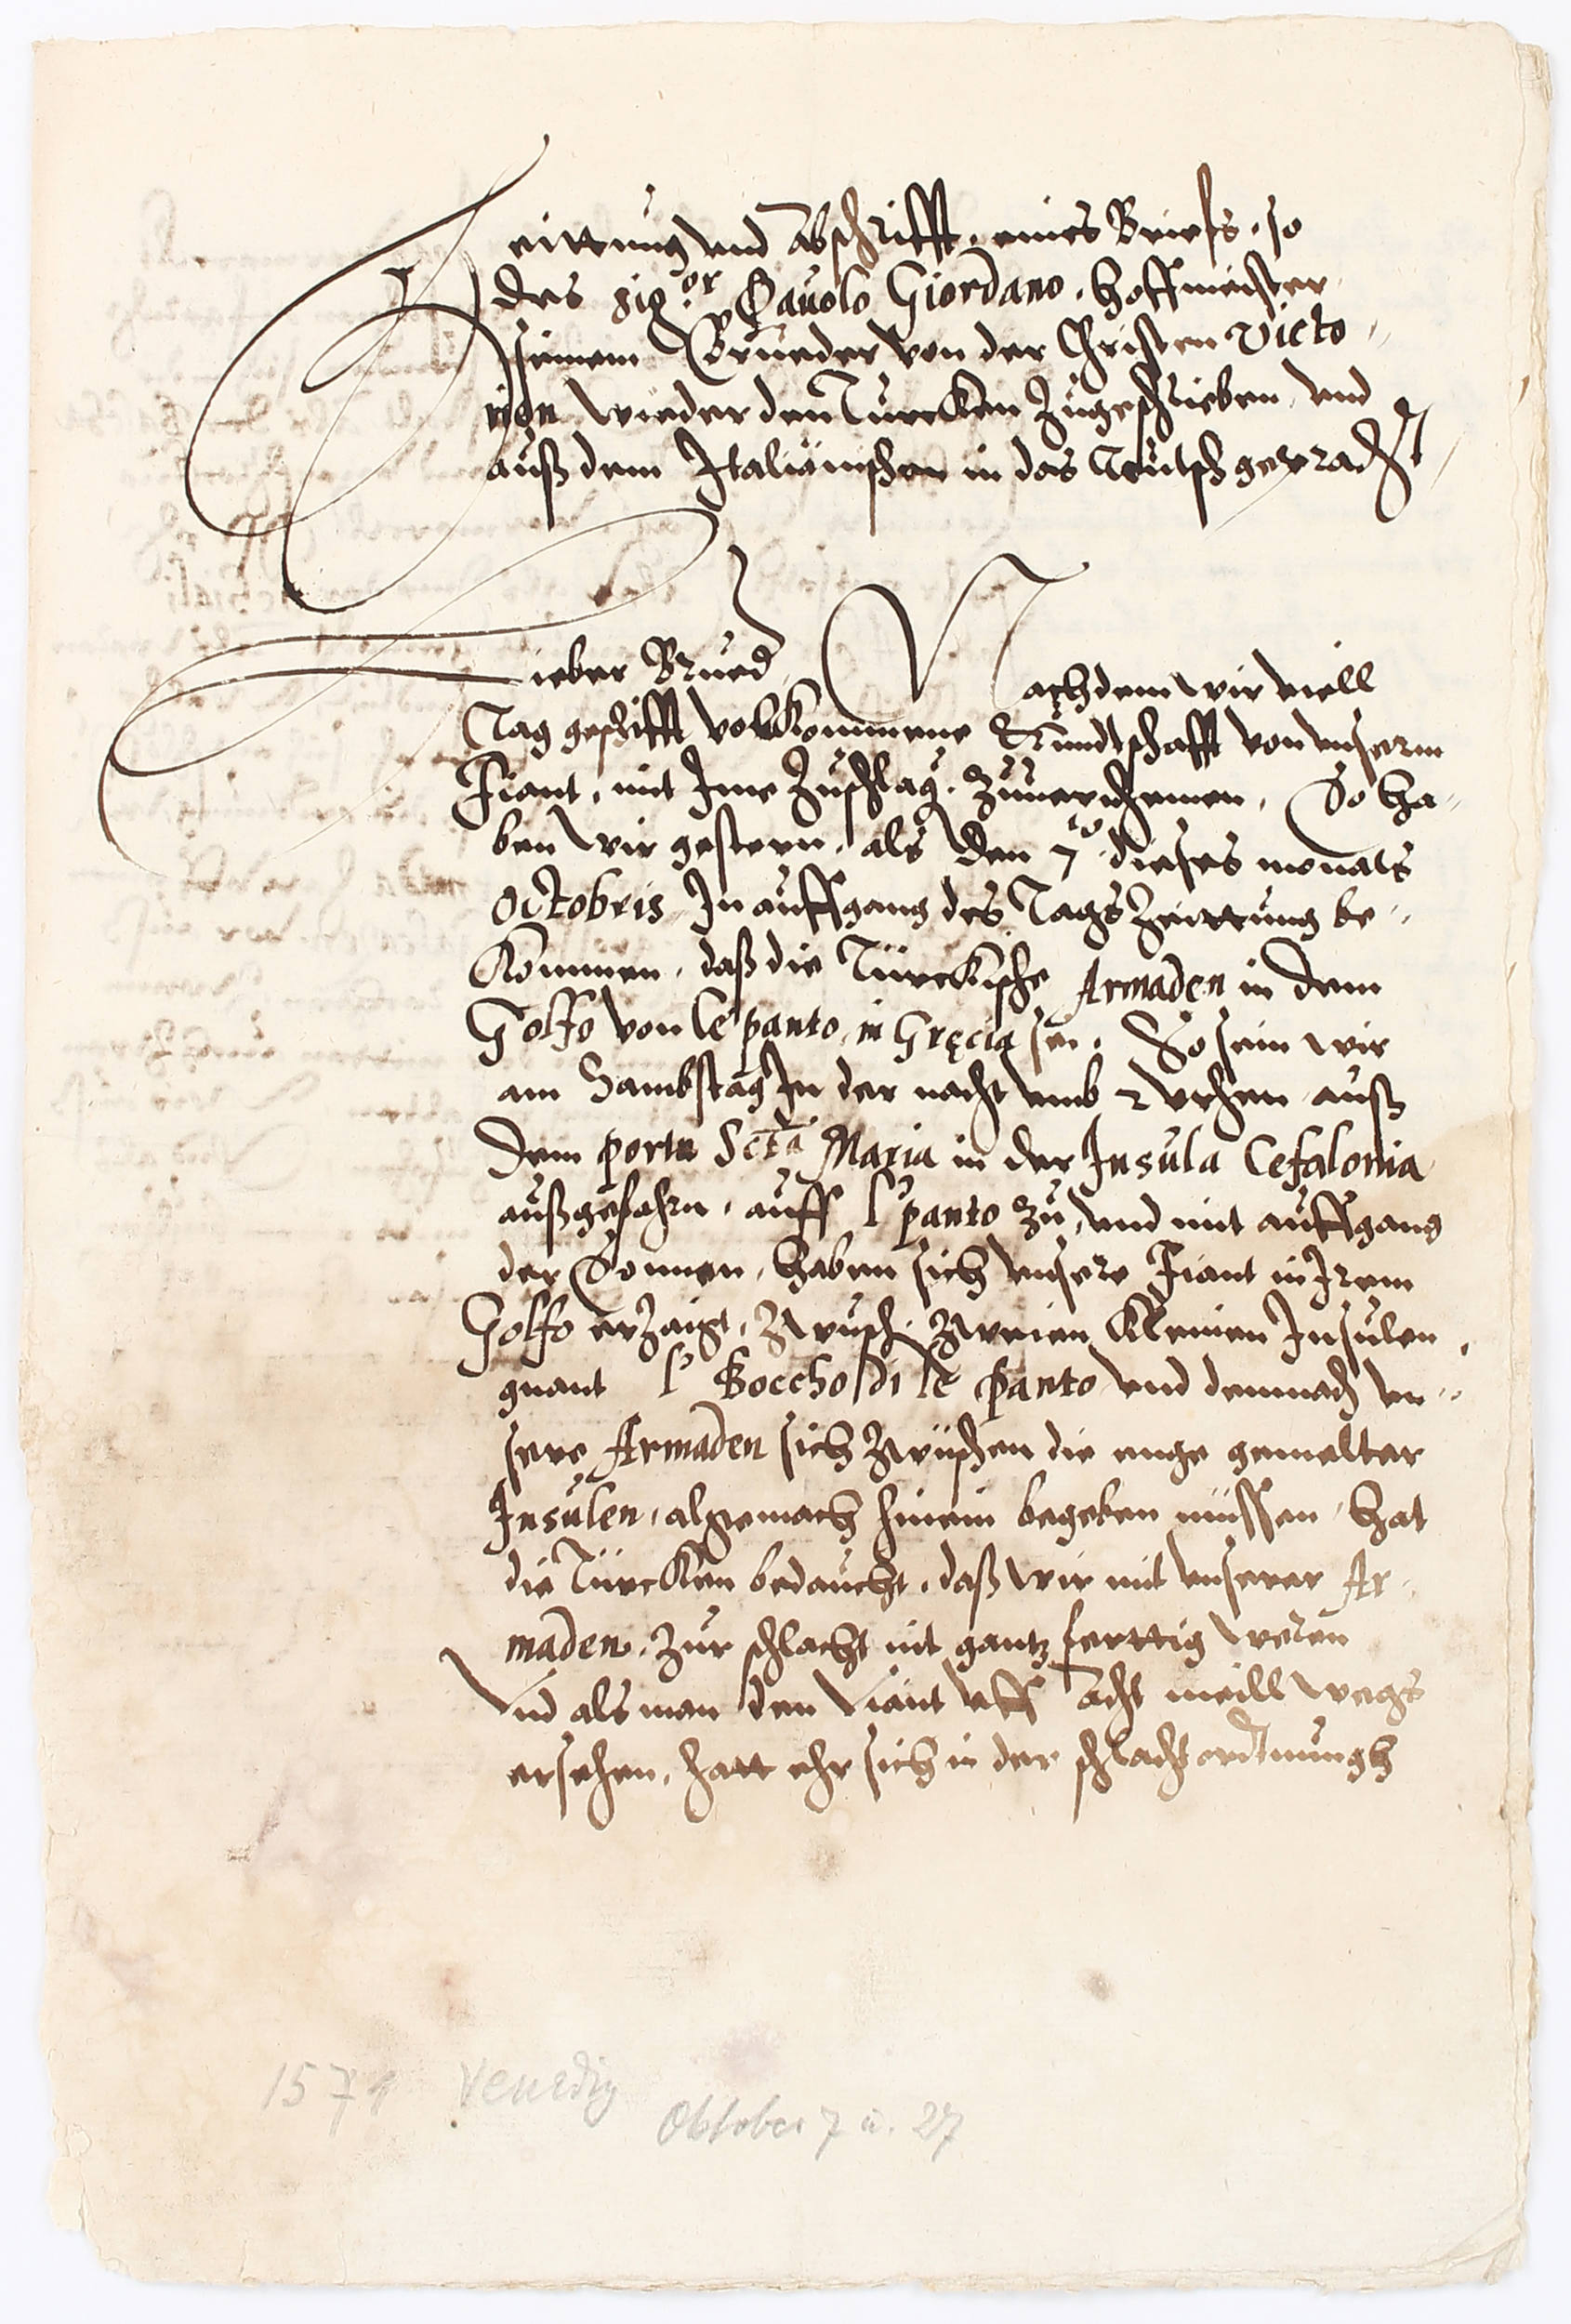 Zeittung vnd Abschrifft, eines Briefs, so
des Sig:or Pauolo Giordano, Hoffmeister
seinem Brueder von der Christen Victo-
rien wieder den Turcken Zugeschrieben, vnd
auß dem Italiänischen in das Teutsch gepracht
Lieber Brued. Nachdem wir viell
Tag geschifft volkommene Kundtschafft von vnserm
Fiant, mit Ime Zuschlag. Zuuernehmen, So ha-
ben wir gestern, als den 7to dieses monats
Octobris In auffgang des Tags Zeittung be-
kommen, daß die Türckische Armaden in dem
Golfo von le panto, in Gręcia sey. So sein wir
am Sambstag In der nacht vmb 2 Vrhen auß
dem porta Scta Maria in der Insula Cefalonia
außgefahrn, auff l'panto zu, vnd mit auffgang
der Sonnen, haben sich vnsere Fiant in Irem
Golfo erzaigt, Zwusch. zweien kleinen Insulen,
gnant l' Boccho di le panto vnd demnach vn-
sere Armaden sich Zwüschen die enge gemelter
Insulen, algemach hinein begeben müssen, hat
die Türcken bedaucht, daß wir mit vnserer Ar-
maden, zur schlacht nit gantz ferttig weren
Vnd als man den Viant vff Acht meill wegs
ersehen, hatt ehr sich in der schlachtordtnungh
1571 Venedig
Oktober 7 u. 27